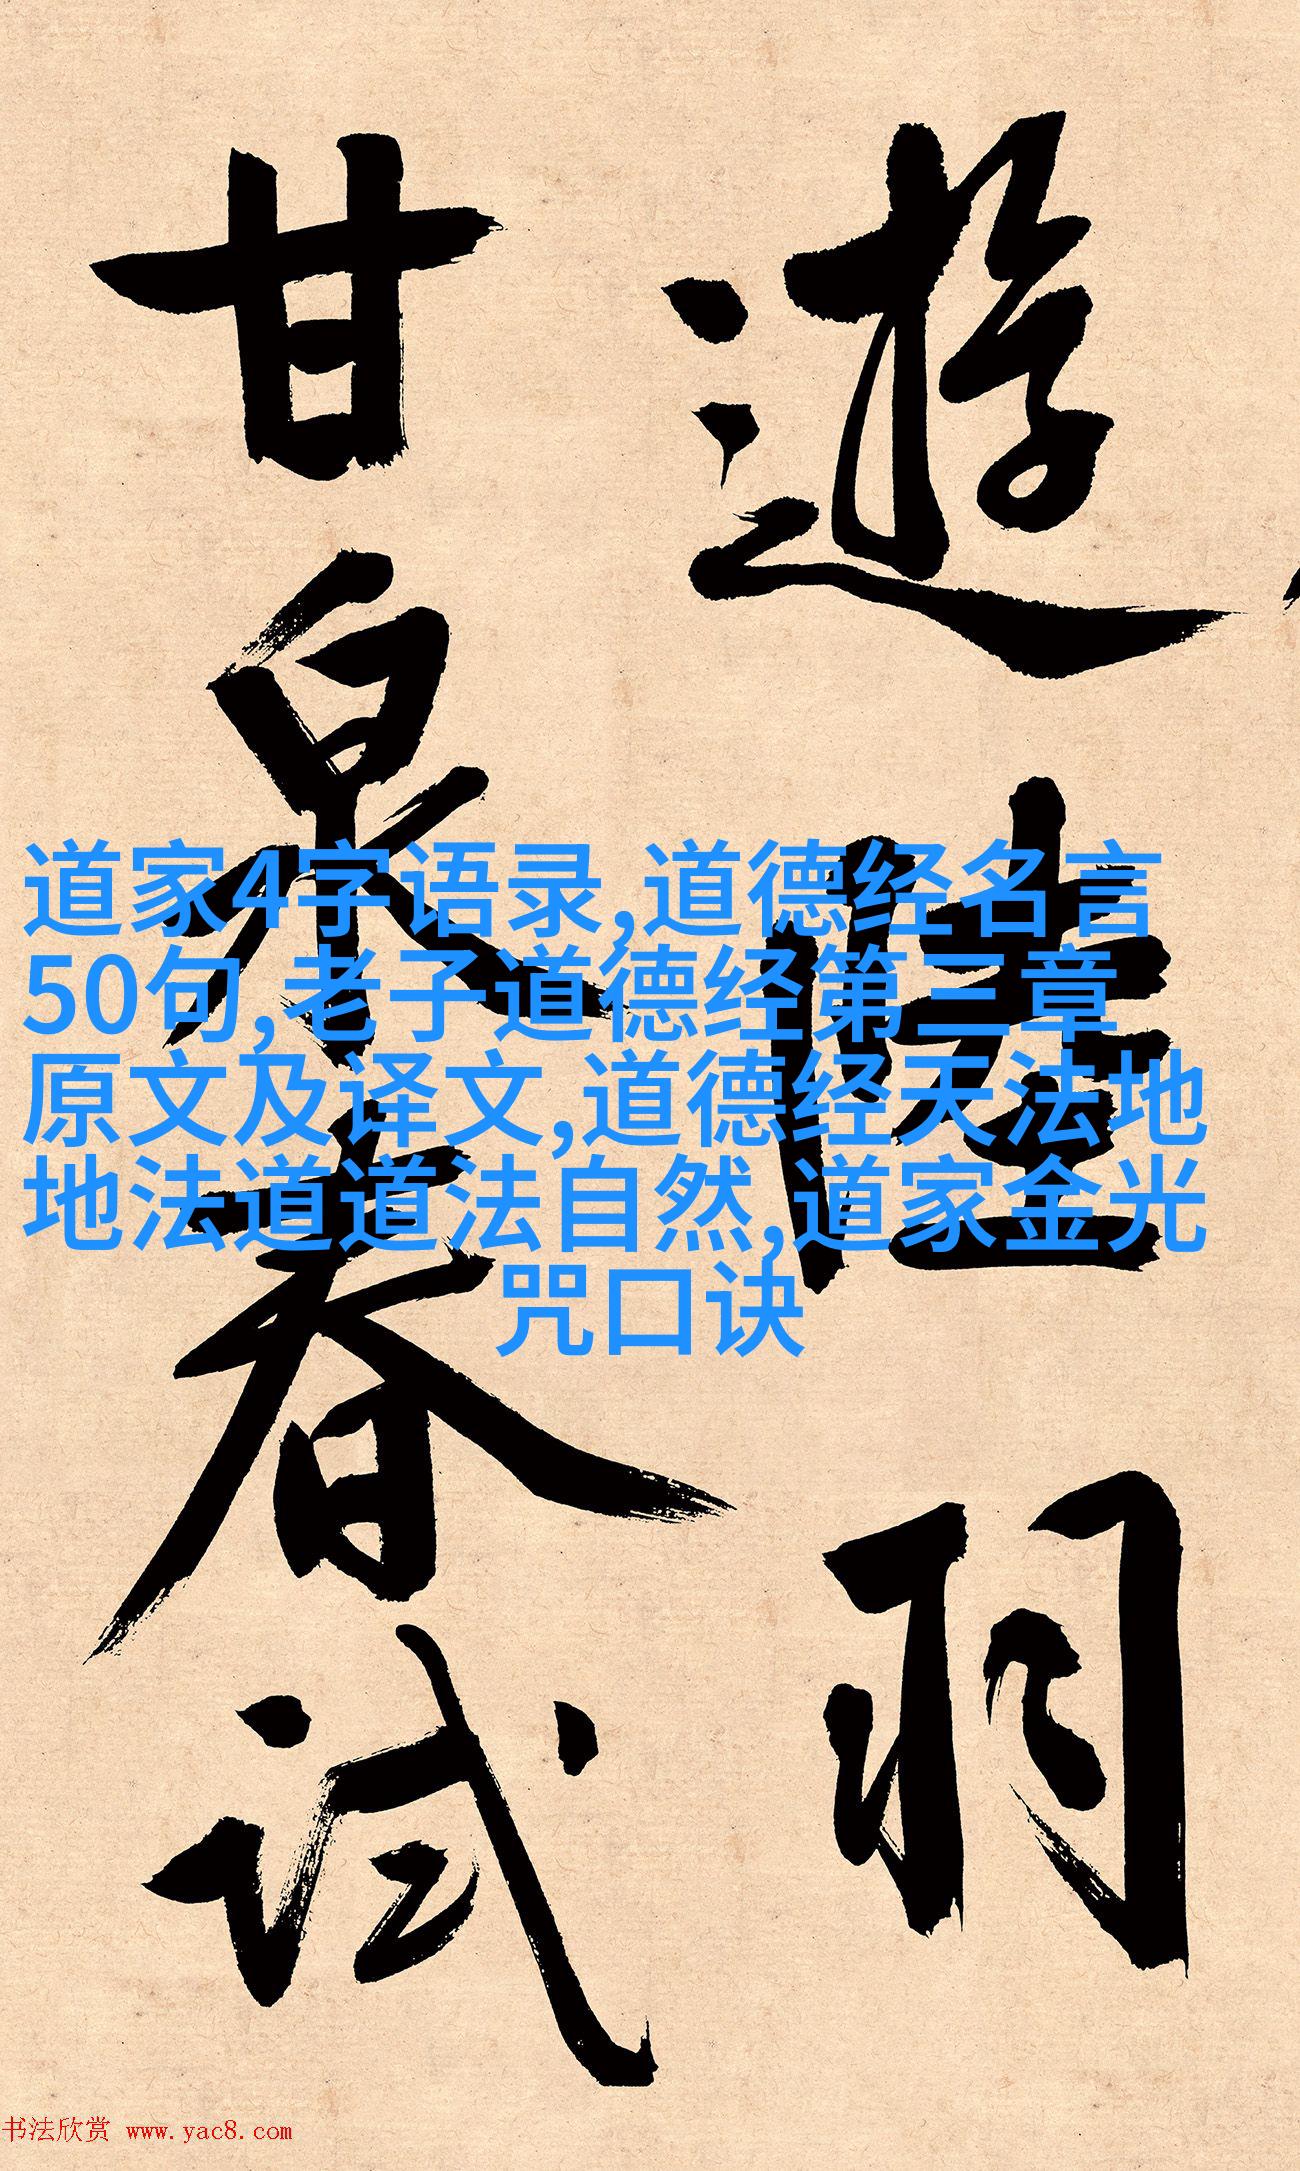 遊陸羽
甘泉春試
道家4字语录,道德经名言
50句,老子道德经第三章
原文及译文,道德经天法地
地法道道法自然,道家金光
咒口诀
书法欣赏 www.yac8.com